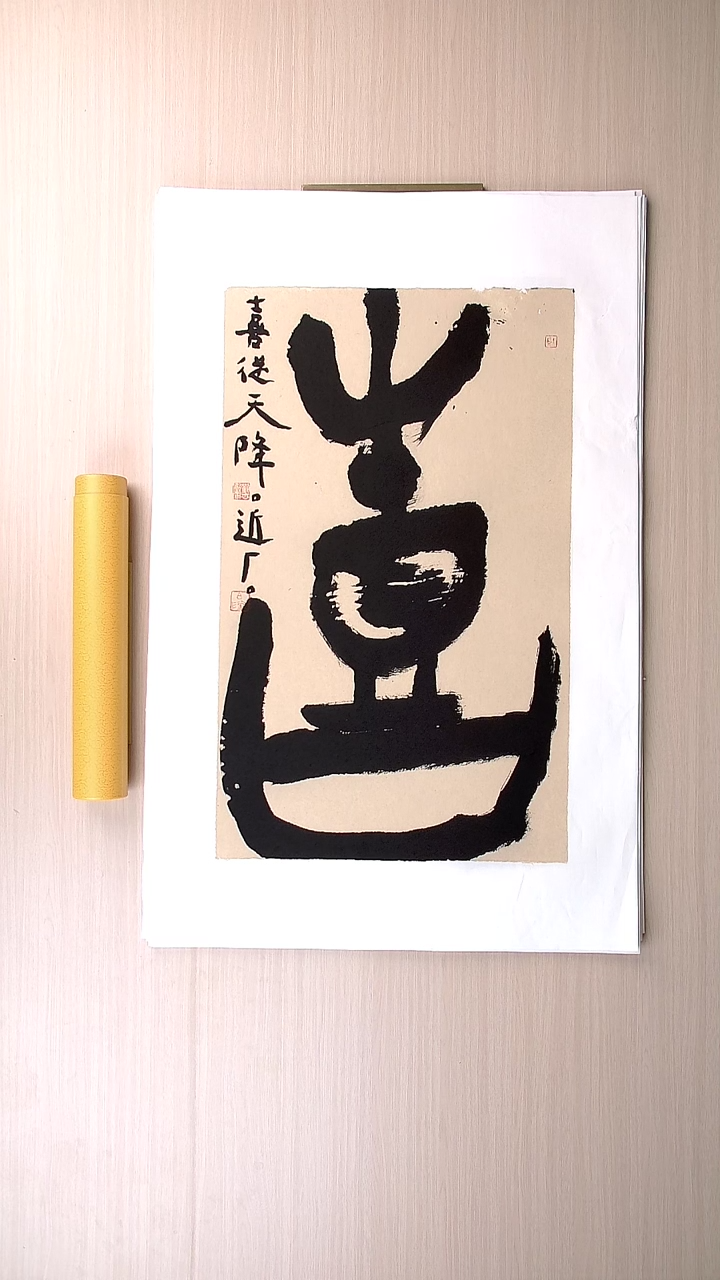 喜
喜從天降。近厂。